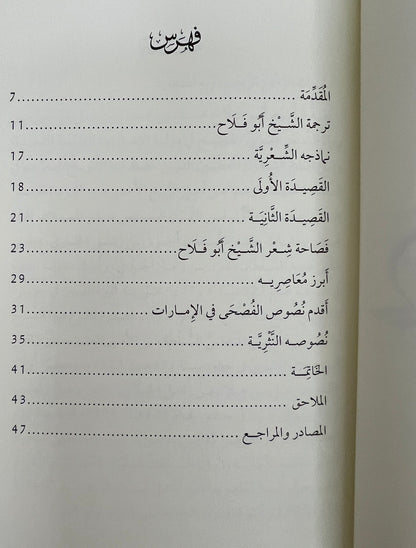 فهرس
المُقَدِّمَة ........................ 7
ترجمة الشَّيْخ أَبُو فَلَاح ........................ 11
نماذجه الشِّعْرِيَّة ........................ 17
القَصِيدَة الأُولَى ........................ 18
القَصِيدَة الثَّانِيَة ........................ 21
فَصَاحة شِعْر الشَّيْخ أَبُو فَلَاح ........................ 23
أَبرز مُعَاصِرِيه ........................ 29
أَقدم نُصُوص الفُصْحَى في الإمارات ........................ 31
نُصُوصه النَّثْرِيَّة ........................ 35
الخَاتِمَة ........................ 41
الملاحق ........................ 43
المصادر والمراجع ........................ 47